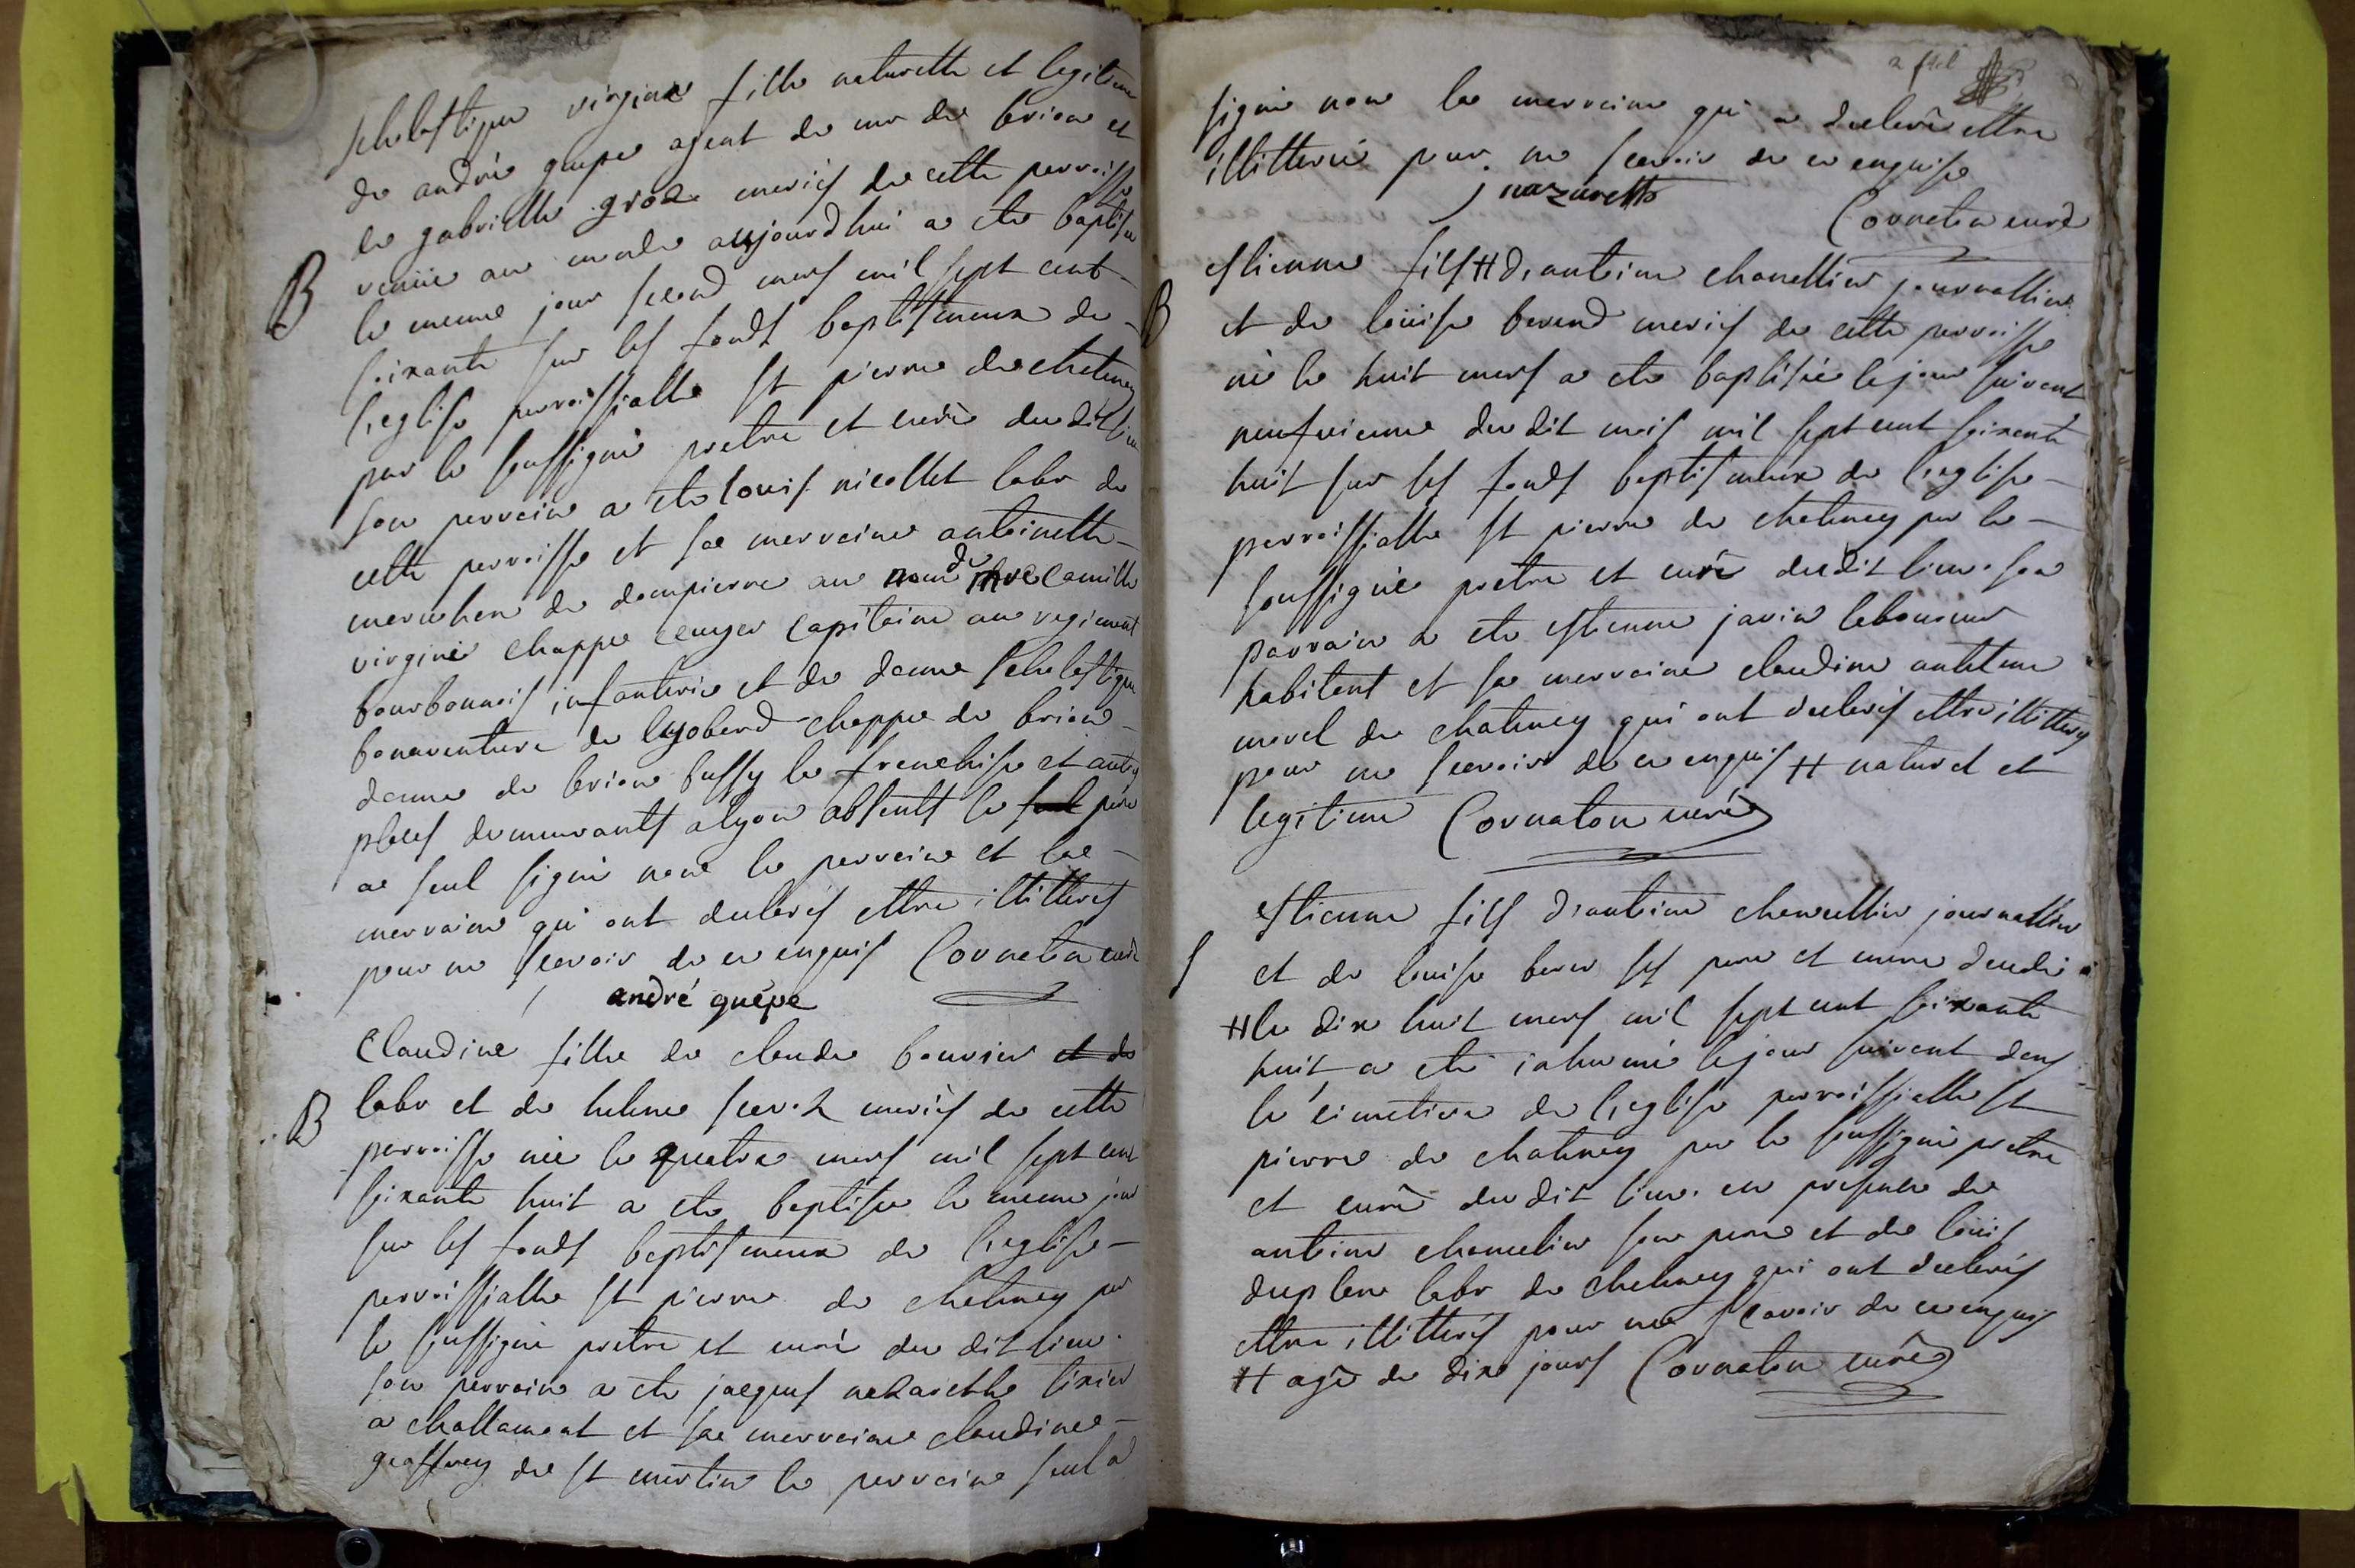 B
Scholastique virginie fille naturelle et legitime
de andrée guepe agent de mr de brion et
de gabrielle groz mariés de cette parroisse
venüe au monde aujourdhui a ete baptisée
le meme jour second mars mil sept cent
soixante sur les fonds baptismaux de
l'eglise parroissialle St pierre de chatenay
par le soussigné pretre et curé du dit lieu
son parrain a ete louis nicollet labr de
cette parroisse et sa marraine antoinette
de dompierre au nom de mre camille
virginé chappe ecuyer capitaine au regiment
bourbonnois infanterie et de dame scholastique
bonaventure de lyobard chappe de brion
dame de brion bussy la franchise et autres
places demeurants a lyon absents le seul pere
a seul signé non le parrain et la
marraine qui ont declarés ettre illitterés
pour ne scavoir de ce enquis Cornaton curé
andré guépe
B
Claudine fille de claude bouvier et de
labr et de helene mariés de cette
parroisse née le quatre mars mil sept cent
soixante huit a ete baptisée le meme jour
sur les fonds baptismaux de l'eglise
parroissialle St pierre de chatenay par
le soussigné pretre et curé du dit lieu.
son parrain a ete jacques nazarette tixier
a challamont et sa marraine claudine
geoffray de st martin le parrain seul a
signé non la marraine qui a declaré ettre
illitterée pour ne scavoir de ce enquise
j nazarette
Cornaton curé
B
estienne fils # d'antoine chanellier journallier
et de loüise berard mariés de cette parroisse
né le huit mars a ete baptisée le jour suivant
neufvieme du dit mois mil sept cent soixante
huit sur les fonds baptismaux de l'eglise
parroissialle St pierre de chatenay par le
soussigné pretre et curé du dit lieu. son
parrain a ete estienne javin laboureur
habitant et sa marraine claudine anthelme
morel de chatenay qui ont declarés ettre illitterés
pour ne scavoir de ce enquis # naturel et
legitime Cornaton curé
S
estienne fils d'antoine chanellier journallier
et de louise berar ses pere et mere decedé
# le dix huit mars mil sept cent soixante
huit a ete inhumé le jour suivant dans
le cimetiere de l'eglise parroissialle St
pierre de chatenay par le soussigné pretre
et curé du dit lieu. en presence de
antoine chanelier son pere et de loüis
duplan labr de chatenay qui ont declarés
ettre illitterés pour ne scavoir de ce enquis
# agé de dix jours Cornaton curé